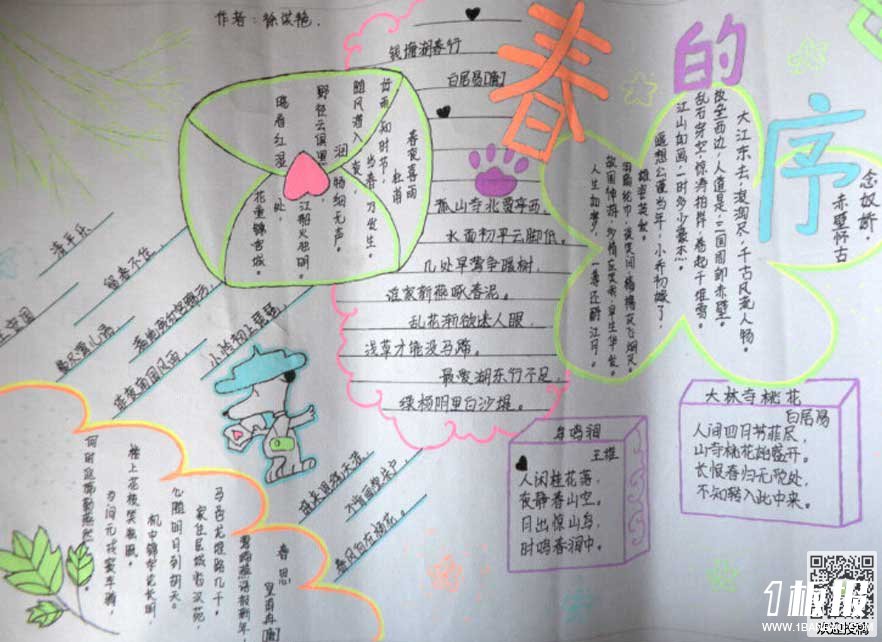 春的序
作者：
春夜喜雨
杜甫
好雨知时节，
当春乃发生。
随风潜入夜，
润物细无声。
野径云俱黑，
江船火独明。
晓看红湿处，
花重锦官城。
钱塘湖春行
白居易[唐]
孤山寺北贾亭西，
水面初平云脚低。
几处早莺争暖树，
谁家新燕啄春泥。
乱花渐欲迷人眼，
浅草才能没马蹄。
最爱湖东行不足，
绿杨阴里白沙堤。
念奴娇·
赤壁怀古
大江东去，浪淘尽，千古风流人物。
故垒西边，人道是，三国周郎赤壁。
乱石穿空，惊涛拍岸，卷起千堆雪。
江山如画，一时多少豪杰。
遥想公瑾当年，小乔初嫁了，
雄姿英发。
羽扇纶巾，谈笑间
故国神游，多情应笑我，早生华发。
人生如梦，一尊还酹江月。
清平乐
王安国
留春不住，
费尽莺儿语。
满地残红宫锦污，
昨夜南园风雨。
小怜初上琵琶，
晓来思绕天涯。
不肯画堂朱户，
春风自在杨花。
春思
皇甫冉[唐]
莺啼燕语报新年，
马邑龙堆路几千。
家住层城临汉苑，
心随明月到胡天。
机中锦字论长恨，
楼上花枝笑独眠。
为问元戎窦车骑，
何时返旆勒燕然。
鸟鸣涧
王维
人闲桂花落，
夜静春山空。
月出惊山鸟，
时鸣春涧中。
大林寺桃花
白居易
人间四月芳菲尽，
山寺桃花始盛开。
长恨春归无觅处，
不知转入此中来。
1板报
WWW.1BANBAO.COM
快速投稿